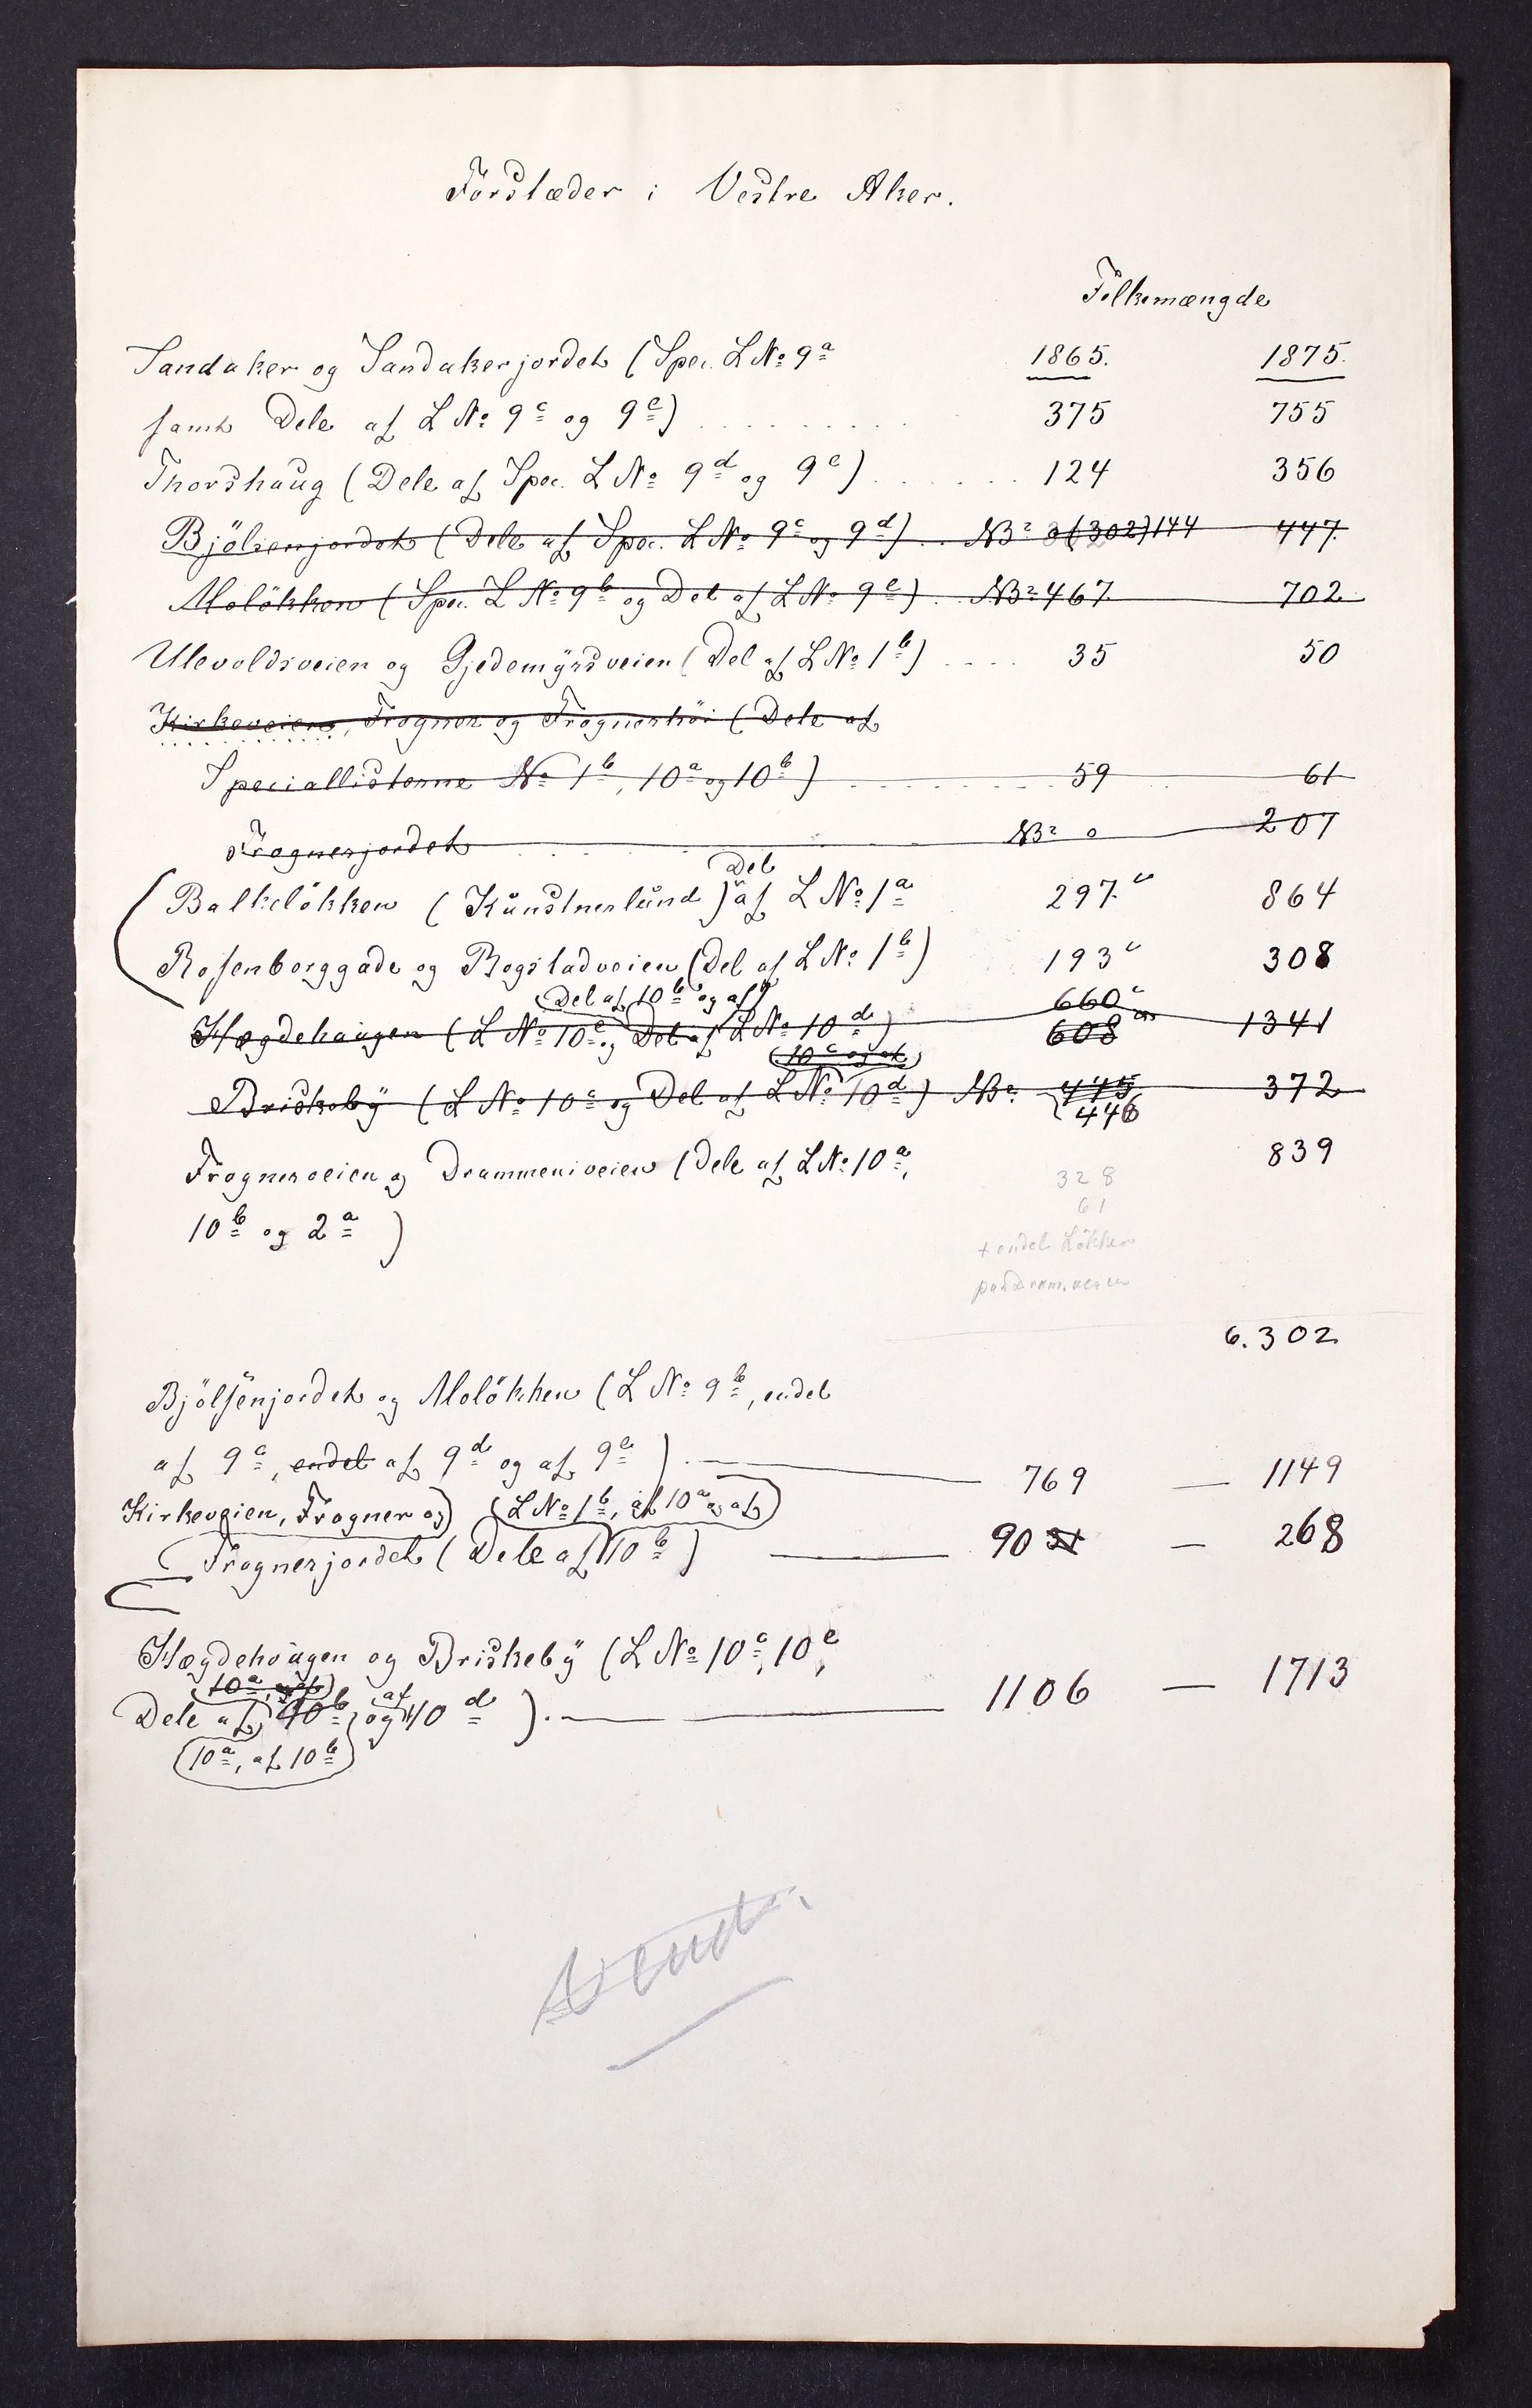 Forstæder i Vestre Aker.
Folkemængde
Sandaker og Sandakerjordet (Spec. L No 9a 1865. 1875.
samt Dele af L No 9c og 9e) . . . . . . . . . 375 755
Thorshaug (Dele af Spec. L No 9d og 9e) . . . . . . 124 356
Bjölsenjordet (Dele af Spec. L No 9c og 9d) . . NB: (302) 144 447.
Molökken (Spec. L No 9b og Del af L No 9e) . NB: 467 702
Ulevoldsveien og Gjedemyrsveien (Del af L No 1b) . . . . 35 50
Kirkeveien, Frogner og Frognerhöi (Dele af
Speciallisterne No 1b, 10a og 10b) . . . . . . . . . 59 61
Frognerjordet NB: 0 207
Del
Balkeløkken (Kunstnerlund) af L No 1a 297. 864
Rosenborggade og Bogstadveien (Del af L No 1b) 193 308
(Del af 10b og af) 660
Hægdehaugen (L No 10e og Del af L No 10d) 608 1341
(10a og af)
Briskeby (L No 10c og Del af L No 10d) NB: 445 372
446
Frognerveien og Drammensveien (Dele af L No 10a, 839
328
61
10b og 2a)
+ endel Løkker
paa Dram.veien
6.302
Bjölsenjordet og Molökken (L No 9b, endel
af 9c, endel af 9d og af 9e). 769 — 1149
Kirkeveien, Frogner og (L No 1b, af 10a og af)
Frognerjordet (Dele af 10b) 90 — 268
Hægdehaugen og Briskeby (L No 10c, 10e,
10a, af
Dele af 10b og af 10d). — 1106 — 1713
(10a, af 10b)
Vend.